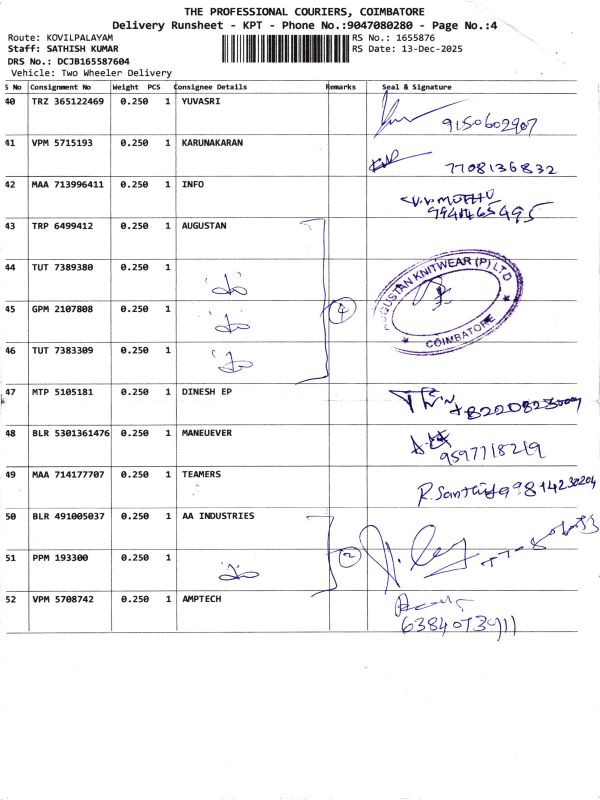 THE PROFESSIONAL COURIERS, COIMBATORE
Delivery Runsheet - KPT - Phone No.:9047080280 - Page No.:4
Route: KOVILPALAYAM
RS No.: 1655876
Staff: SATHISH KUMAR
RS Date: 13-Dec-2025
DRS No.: DCJB165587604
Vehicle: Two Wheeler Delivery
S No Consignment No Weight PCS Consignee Details Remarks Seal & Signature
40 TRZ 365122469 0.250 1 YUVASRI
9150602907
41 VPM 5715193 0.250 1 KARUNAKARAN
7708136832
42 MAA 713996411 0.250 1 INFO
43 TRP 6499412 0.250 1 AUGUSTAN
44 TUT 7389380 0.250 1
45 GPM 2107808 0.250 1 4
AUGUSTAN KNITWEAR (P) LTD
COIMBATORE
46 TUT 7383309 0.250 1
47 MTP 5105181 0.250 1 DINESH EP
48 BLR 5301361476 0.250 1 MANEUEVER
9597718219
49 MAA 714177707 0.250 1 TEAMERS
9814230204
50 BLR 491005037 0.250 1 AA INDUSTRIES
51 PPM 193300 0.250 1 2
52 VPM 5708742 0.250 1 AMPTECH